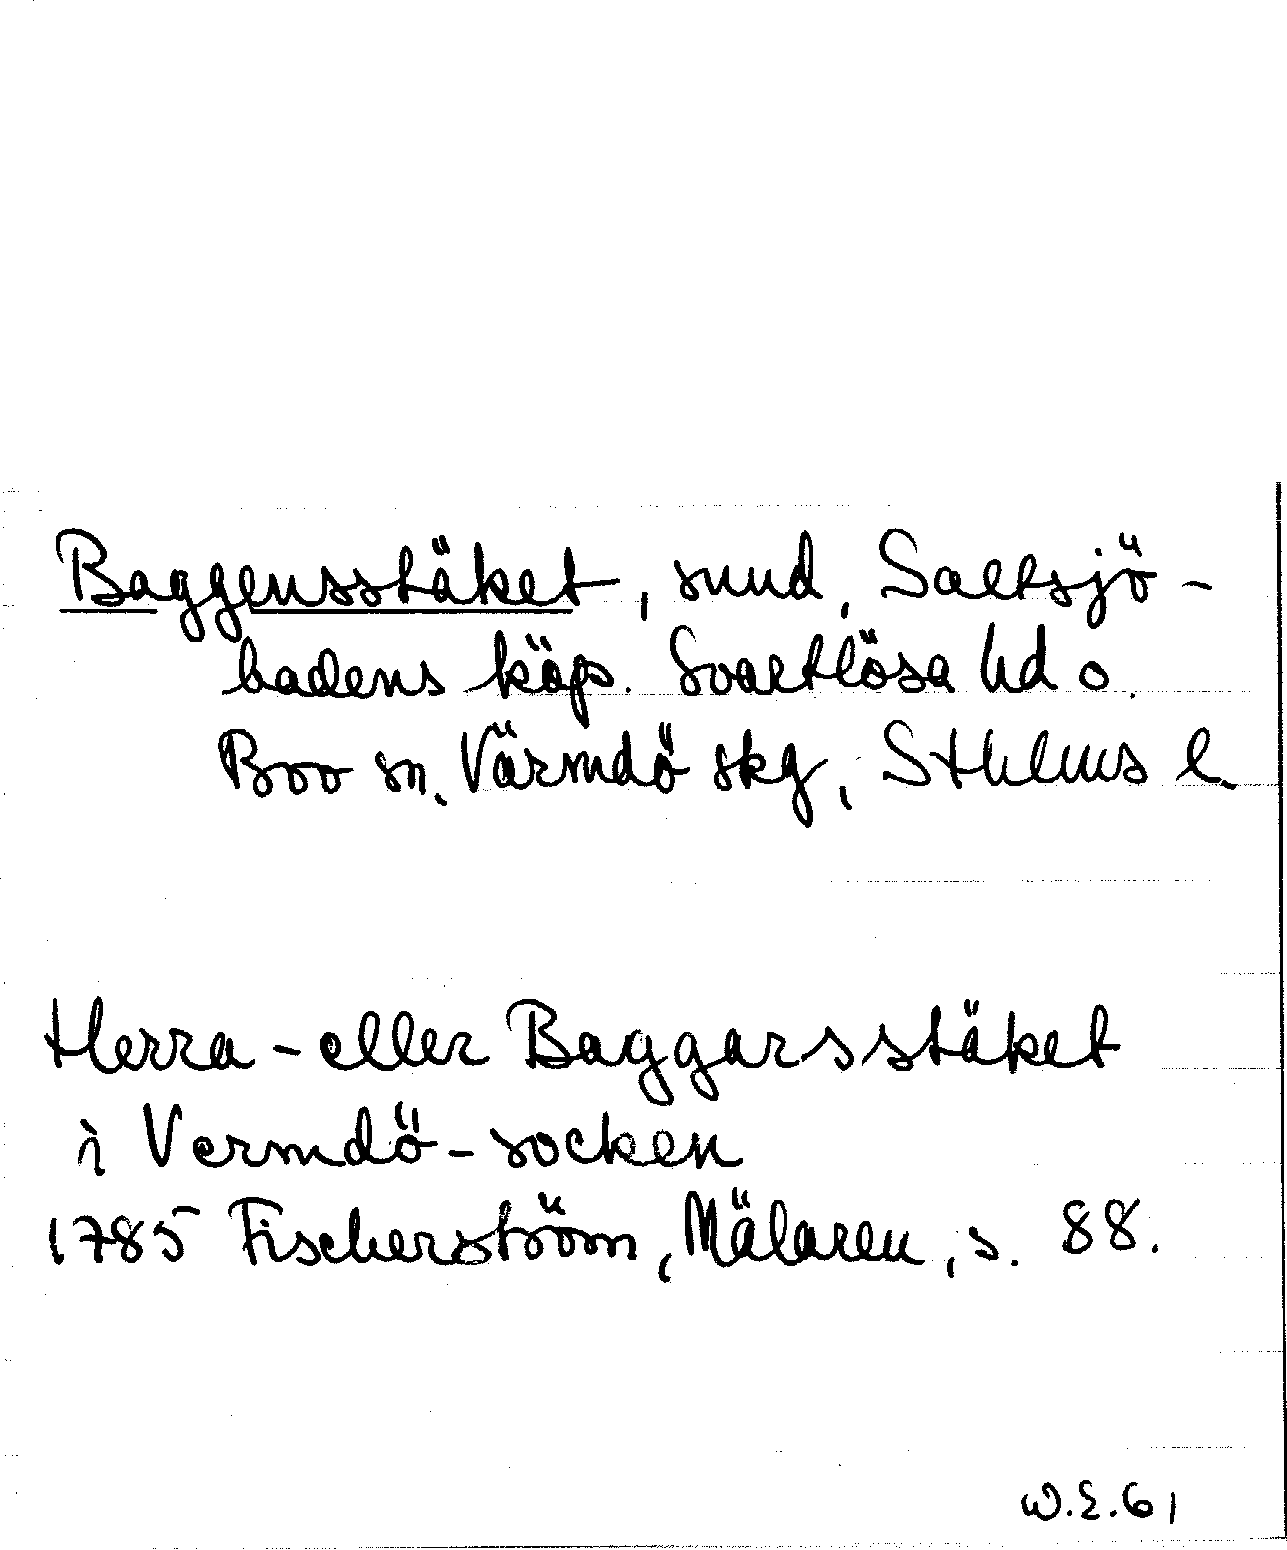 Baggensstäket, sund, Saltsjö-
badens köp. Svartlösa hd o.
Boo sn, Värmdö skg, Sthlms l.
Herra- eller Baggarsstäket
i Vermdö-socken
1785 Fischerström, Mälaren, s. 88.
W.E.61